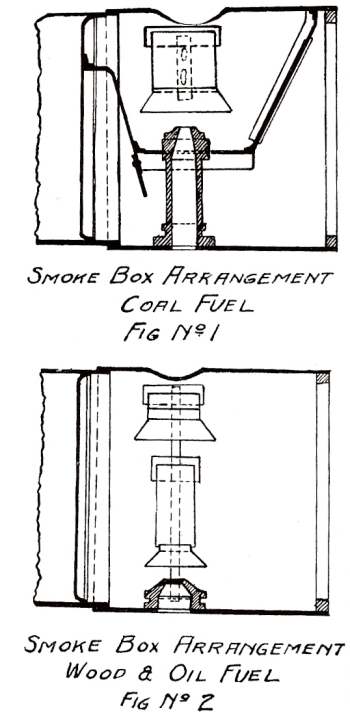 SMOKE BOX ARRANGEMENT
COAL FUEL
FIG Nº 1
SMOKE BOX ARRANGEMENT
WOOD & OIL FUEL
FIG Nº 2